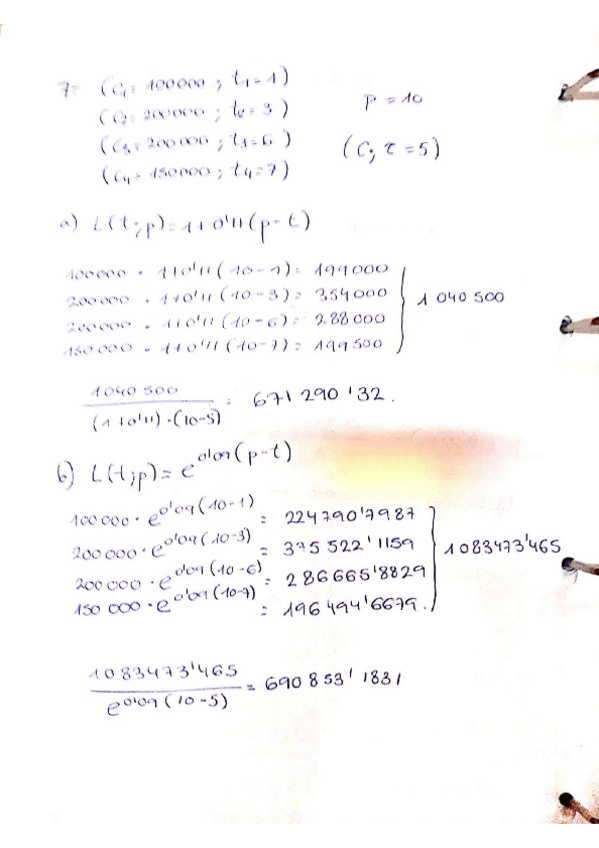 7= (C₁= 100000 ; t₁=1)
(C₂= 200000 ; t₂= 3)
(C₃= 200000 ; t₃=6)
(C₄= 150000 ; t₄=7)
p = 10
(C; τ =5)
a) L(t;p)=1+0'11(p-t)
100000 · 1+0'11(10-1)= 199000
200000 · 1+0'11(10-3)= 354000
200000 · 1+0'11(10-6)= 288000
150 000 · 1+0'11(10-7)= 199500
1 040 500
1040 500 / (1+0'11)·(10-5) = 671 290'32.
b) L(t;p)= e^0'09(p-t)
100000 · e^0'09(10-1) = 224790'7987
200000 · e^0'09(10-3) = 375 522'1159
200000 · e^0'09(10-6) = 286665'8829
150 000 · e^0'09(10-7) = 196494'6679.
1083473'465
1083473'465 / e^0'09(10-5) = 690853'1831